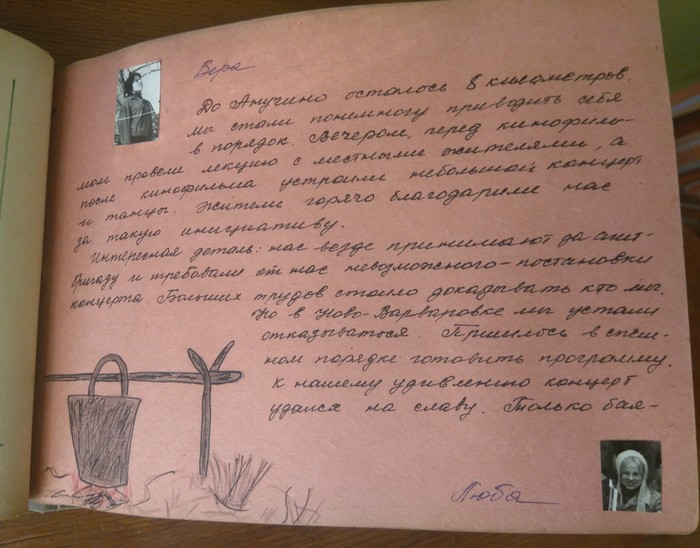 Вера
До Анучино осталось 8 километров.
мы стали понемногу приводить себя
в порядок. Вечером, перед кинофиль-
мом провели лекцию с местными жителями, а
после кинофильма устроили небольшой концерт
и танцы. Жители горячо благодарили нас
за такую инициативу.
Интересная деталь: нас везде принимают за агит-
бригаду и требовали от нас невозможного - постановки
концерта. Больших трудов стоило доказывать кто мы.
Но в Ново-Варваровке мы устали
отказываться. Пришлось в спеш-
ном порядке готовить программу.
К нашему удивлению концерт
удался на славу. Только бая-
Люба